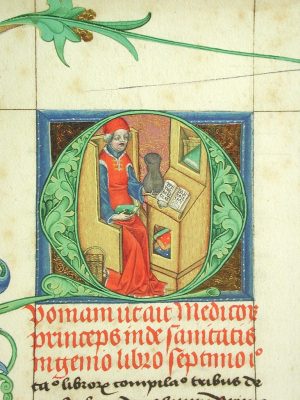 QVoniam ut ait Medicoꝝ
princeps in de sanitatis
ingenio libro septimo i°
libroꝝ tribus de